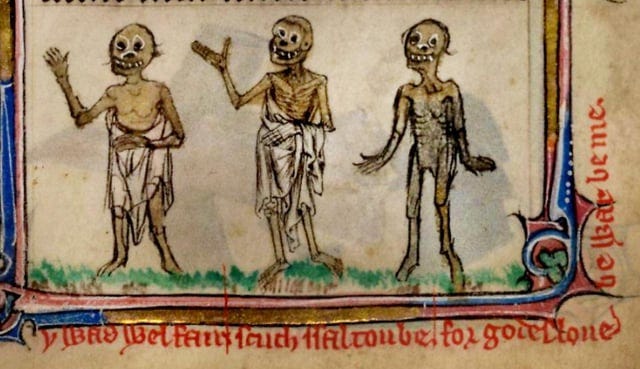 y was wel fair scuch ssaltou be. for godes loue
be war be me.